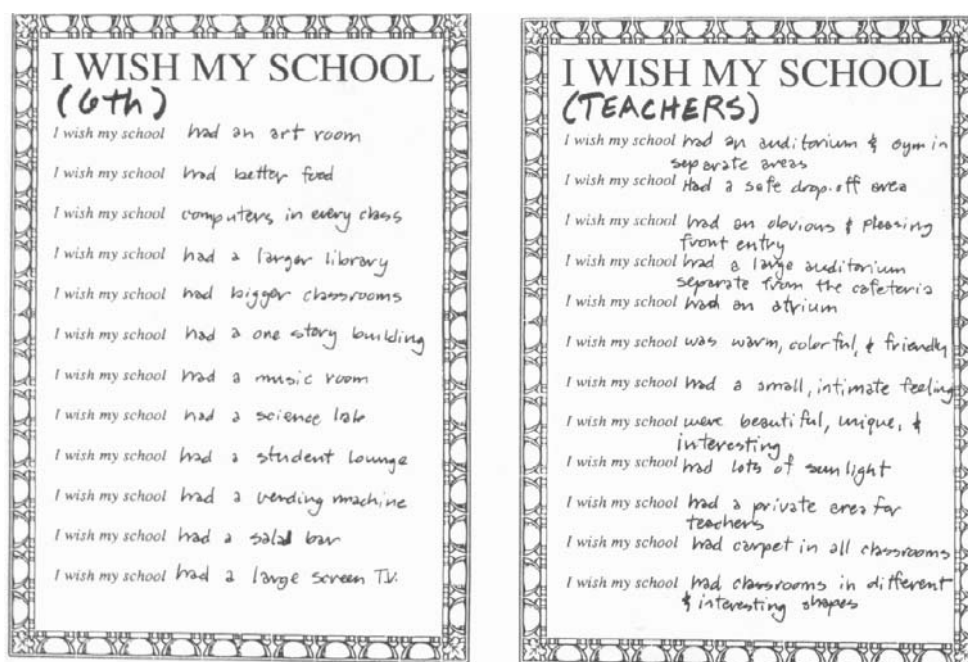 I WISH MY SCHOOL
(6th)
I wish my school had an art room
I wish my school had better food
I wish my school computers in every class
I wish my school had a larger library
I wish my school had bigger classrooms
I wish my school had a one story building
I wish my school had a music room
I wish my school had a science lab
I wish my school had a student lounge
I wish my school had a vending machine
I wish my school had a salad bar
I wish my school had a large screen T.V.
I WISH MY SCHOOL
(TEACHERS)
I wish my school had an auditorium & gym in
separate areas
I wish my school Had a safe drop-off area
I wish my school had an obvious & pleasing
front entry
I wish my school had a large auditorium
separate from the cafeteria
I wish my school had an atrium
I wish my school was warm, colorful, & friendly
I wish my school had a small, intimate feeling
I wish my school were beautiful, unique, &
interesting
I wish my school had lots of sunlight
I wish my school had a private area for
teachers
I wish my school had carpet in all classrooms
I wish my school had classrooms in different
& interesting shapes